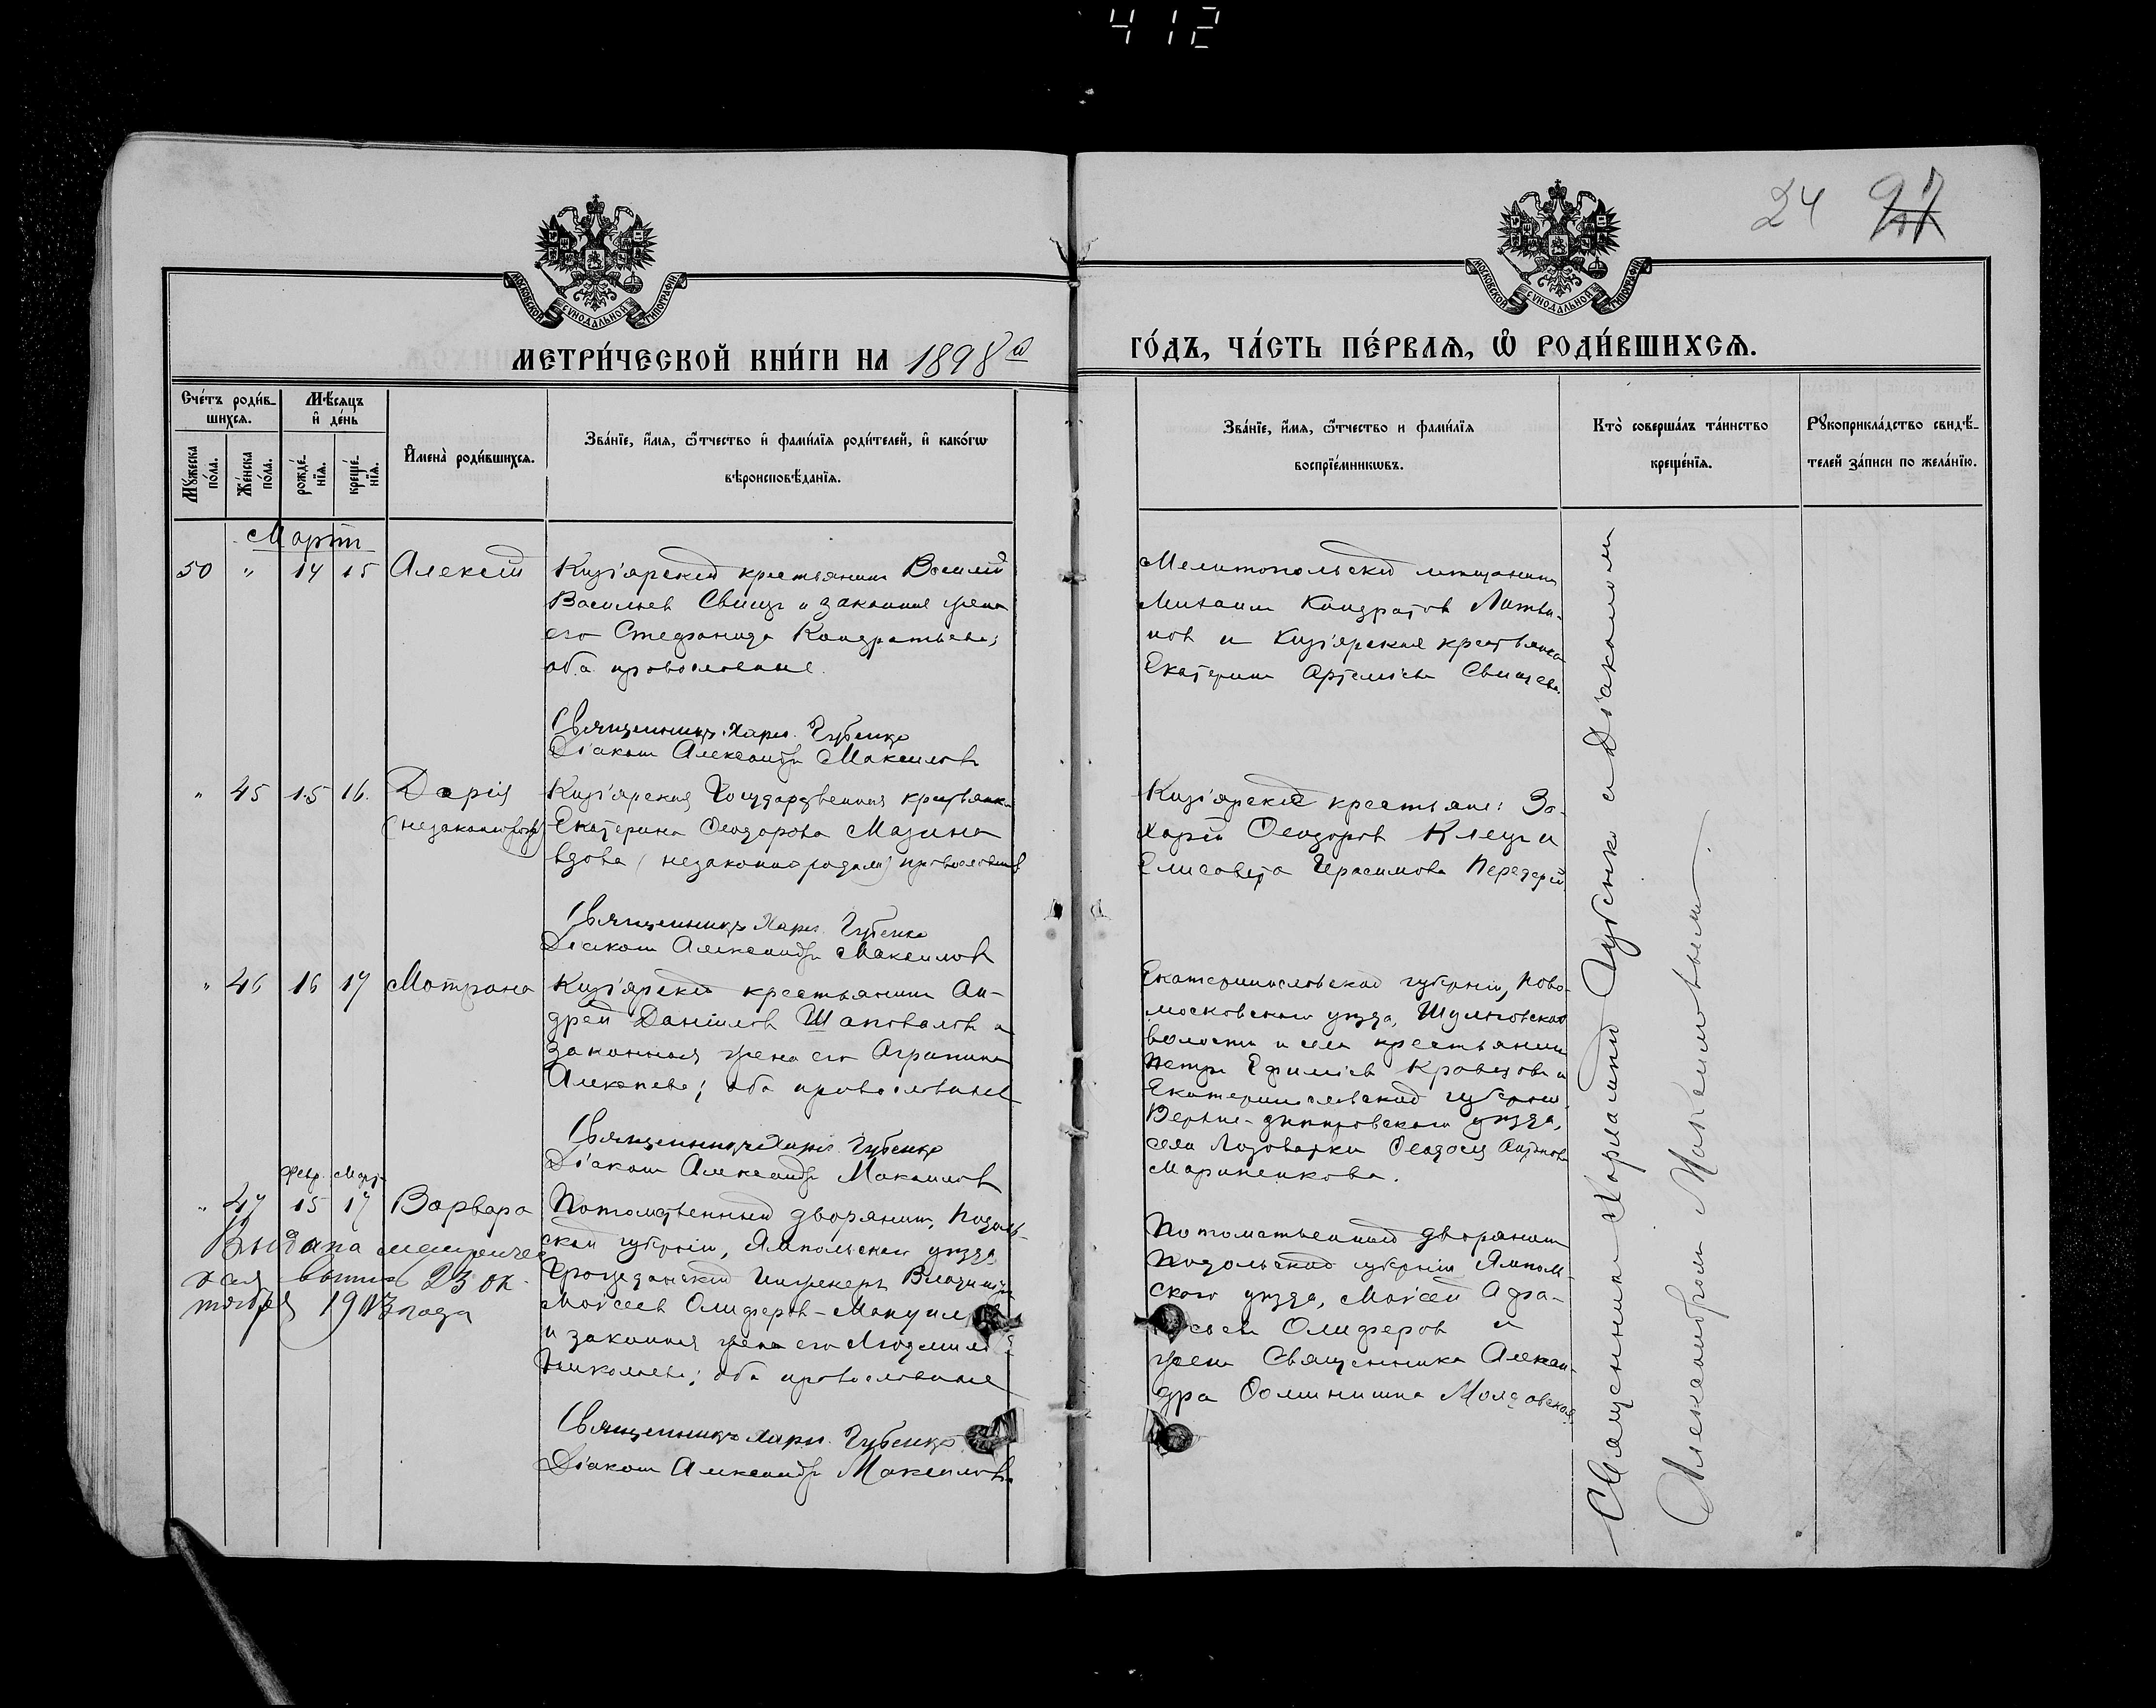 412
24 97
МОСКОВСКОЙ СѴНОДАЛЬНОЙ ТИПОГРАФІИ
МОСКОВСКОЙ СѴНОДАЛЬНОЙ ТИПОГРАФІИ
МЕТРИ́ЧЕСКОЙ КНИ́ГИ НА 1898й ГО́ДЪ, ЧА́СТЬ ПЕ́РВАѦ, Ѡ РОДИ́ВШИХСѦ.
Сче́тъ роди́в-
шихсѧ.
Мꙋ́жеска по́ла.
Же́нска по́ла.
Мѣ́сѧцъ
и҆ де́нь
рожде́-
нїѧ.
креще́-
нїѧ.
И҆мена̀ роди́вшихсѧ.
Зва́нїе, и҆́мѧ, ѻ҆́тчество и҆ фами́лїѧ роди́телей, и҆ како́гѡ
вѣроисповѣ́данїѧ.
Зва́нїе, и҆́мѧ, ѻ҆́тчество и фами́лїѧ
воспрїе́мникѡвъ.
Кто̀ соверша́лъ та́инство
креще́нїѧ.
Рꙋкоприкла́дство свидѣ́-
телей за́писи по жела́нїю.
Мартъ
50 " 14 15 Алексій
Кизіярскій крестьянинъ Василій
Васильевъ Свищъ и законная жена
его Стефанида Кондратьева;
оба православные.
Священникъ Харл. Губенко
Діаконъ Александръ Максимовъ
Мелитопольскій мѣщанинъ
Михаилъ Кондратовъ Литви-
новъ и Кизіярская крестьянка
Екатерина Артеміева Свищева.
" 45 15 16. Дарія
(незаконнорож)
Кизіярская Государственная крестьянка
Екатерина Ѳеодорова Мазина
вдова (незаконнорожден) православная
Священникъ Харл. Губенко
Діаконъ Александръ Максимовъ
Кизіярскіе крестьяне: За-
харій Ѳеодоровъ Клецъ и
Елисавета Герасимова Передерій
" 46 16 17 Матрона
Кизіярскій крестьянинъ Ан-
дрей Даніиловъ Шаповаловъ и
законная жена его Агрипина
Алексѣева; оба православные
Священникъ Харл. Губенко
Діаконъ Александръ Максимовъ
Екатеринославской губерніи, Ново-
московскаго уѣзда, Шульговской
волости и села крестьянинъ
Петръ Ефиміевъ Кравцовъ и
Екатеринославской губерніи
Верхне-днѣпровскаго уѣзда,
села Лозоватки Ѳеодосія Антонова
Мариненкова.
Февр. Март.
" 47 15 17 Варвара
Выдана метричес
кая выпись 23 ок-
тября 1913 года
Потомственный дворянинъ, Подоль-
ской губерніи, Ямпольскаго уѣзда
Гражданскій Инженеръ Владиміръ
Моисеевъ Олиферовъ-
и законная жена его Людмила
Николаева; оба православные
Священникъ Харл. Губенко
Діаконъ Александръ Максимовъ
Потомственный дворянинъ
Подольской губерніи Ямполь-
скаго уѣзда, Моисей
Олиферовъ и
жена Священника Алексан-
дра
Священникъ Харлампій Губенко с Діакономъ
Александромъ Максимовымъ.